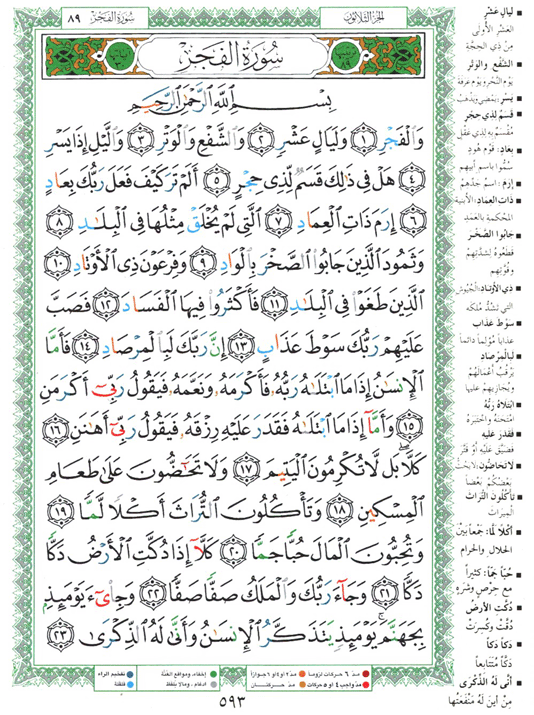 الجزء الثلاثون
سورة الفجر ٨٩
سُورَةُ الفَجْرِ
بِسْمِ اللَّهِ الرَّحْمَٰنِ الرَّحِيمِ
وَالْفَجْرِ ١ وَلَيَالٍ عَشْرٍ ٢ وَالشَّفْعِ وَالْوَتْرِ ٣ وَاللَّيْلِ إِذَا يَسْرِ
٤ هَلْ فِي ذَٰلِكَ قَسَمٌ لِّذِي حِجْرٍ ٥ أَلَمْ تَرَ كَيْفَ فَعَلَ رَبُّكَ بِعَادٍ
٦ إِرَمَ ذَاتِ الْعِمَادِ ٧ الَّتِي لَمْ يُخْلَقْ مِثْلُهَا فِي الْبِلَادِ ٨
وَثَمُودَ الَّذِينَ جَابُوا الصَّخْرَ بِالْوَادِ ٩ وَفِرْعَوْنَ ذِي الْأَوْتَادِ ١٠
الَّذِينَ طَغَوْا فِي الْبِلَادِ ١١ فَأَكْثَرُوا فِيهَا الْفَسَادَ ١٢ فَصَبَّ
عَلَيْهِمْ رَبُّكَ سَوْطَ عَذَابٍ ١٣ إِنَّ رَبَّكَ لَبِالْمِرْصَادِ ١٤ فَأَمَّا
الْإِنسَانُ إِذَا مَا ابْتَلَاهُ رَبُّهُ فَأَكْرَمَهُ وَنَعَّمَهُ فَيَقُولُ رَبِّي أَكْرَمَنِ
١٥ وَأَمَّا إِذَا مَا ابْتَلَاهُ فَقَدَرَ عَلَيْهِ رِزْقَهُ فَيَقُولُ رَبِّي أَهَانَنِ ١٦
كَلَّا بَل لَّا تُكْرِمُونَ الْيَتِيمَ ١٧ وَلَا تَحَاضُّونَ عَلَىٰ طَعَامِ
الْمِسْكِينِ ١٨ وَتَأْكُلُونَ التُّرَاثَ أَكْلًا لَّمًّا ١٩
وَتُحِبُّونَ الْمَالَ حُبًّا جَمًّا ٢٠ كَلَّا إِذَا دُكَّتِ الْأَرْضُ دَكًّا
دَكًّا ٢١ وَجَاءَ رَبُّكَ وَالْمَلَكُ صَفًّا صَفًّا ٢٢ وَجِيءَ يَوْمَئِذٍ
بِجَهَنَّمَ يَوْمَئِذٍ يَتَذَكَّرُ الْإِنسَانُ وَأَنَّىٰ لَهُ الذِّكْرَىٰ ٢٣
ليالٍ عشر
العشر الأولى
من ذي الحجة
الشفع والوتر
يوم النحر ويوم عرفة
يسر: يمضي ويذهب
قسم لذي حجر
مقسم به لذي عقل
بعاد: قوم هود
سموا باسم أبيهم
إرم: اسم جدهم
ذات العماد: الأبنية
المحكمة بالعمد
جابوا الصخر
قطعوه لشدتهم
وقوتهم
ذي الأوتاد: الجيوش
التي تشد ملكه
سوط عذاب
عذابا مؤلما دائما
لبالمرصاد
يرقب أعمالهم
ويجازيهم عليها
ابتلاه ربه
امتحنه واختبره
فقدر عليه
فضيق عليه أو قتر
لا تحاضون: لا يحث
بعضكم بعضا
تأكلون التراث
الميراث
أكلا لما: جمعا بين
الحلال والحرام
حبا جما: كثيرا
مع حرص وشره
دكت الأرض
دقت وكسرت
دكا دكا
دكا متتابعا
أنى له الذكرى
من أين له منفعتها
مد ٦ حركات لزوما
مد ٢ أو ٤ أو ٦ جوازا
إخفاء، ومواقع الغنة
تفخيم الراء
مد واجب ٤ أو ٥ حركات
مد حركتان
ادغام، ومالا يلفظ
قلقلة
٥٩٣